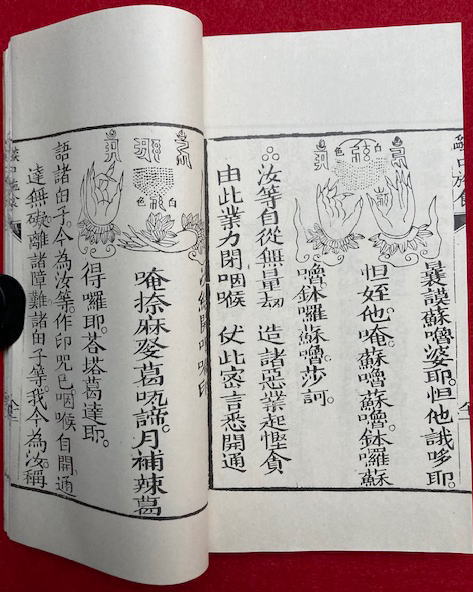 曩謨蘇嚕婆耶。怛他誐哆耶。
怛姪他。唵。蘇嚕蘇嚕。鉢囉蘇
嚕。鉢囉蘇嚕。莎訶。
色 白
∴汝等自從無量劫 造諸惡業起慳貪
由此業力閉咽喉 仗此密言悉開通
白 色
唵捺麻癹葛咓諦。月補辣葛
得囉耶。荅塔葛達耶。
語諸佛子。今為汝等。作印呪已咽喉自開。通
達無礙。離諸障難。諸佛子等。我今為汝。稱